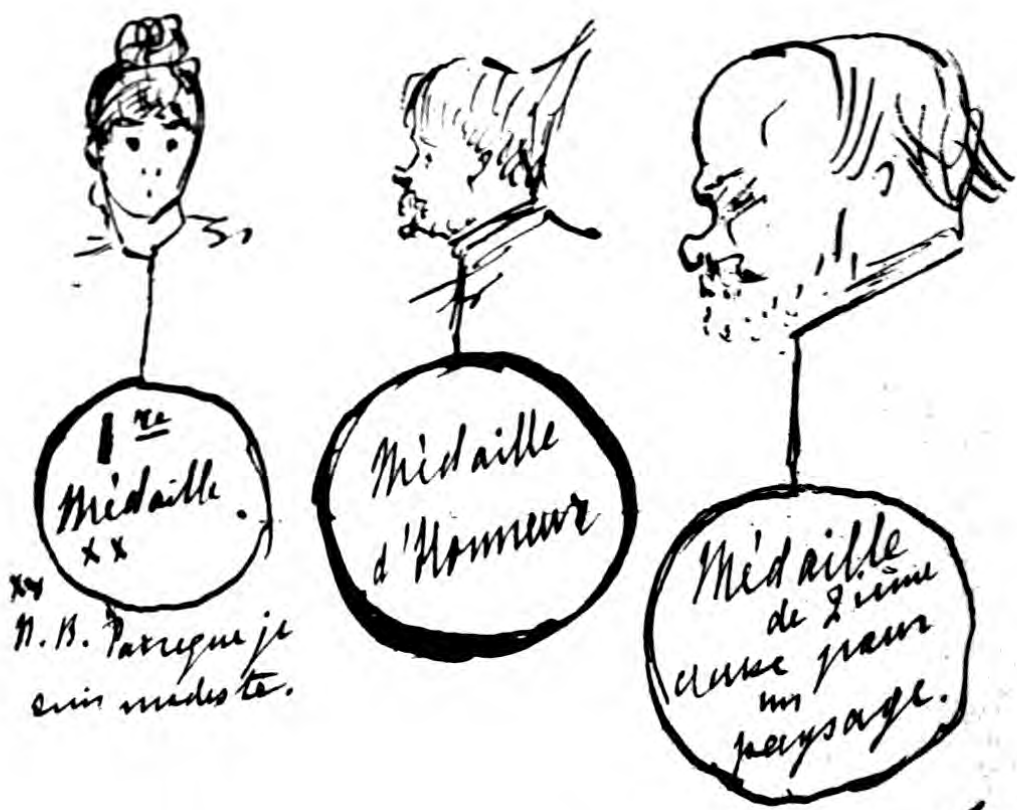 1re
Médaille.
xx
xx
N.B. Parceque je
suis modeste.
Médaille
d'Honneur
Médaille
de 2ième
classe pour
un
paysage.